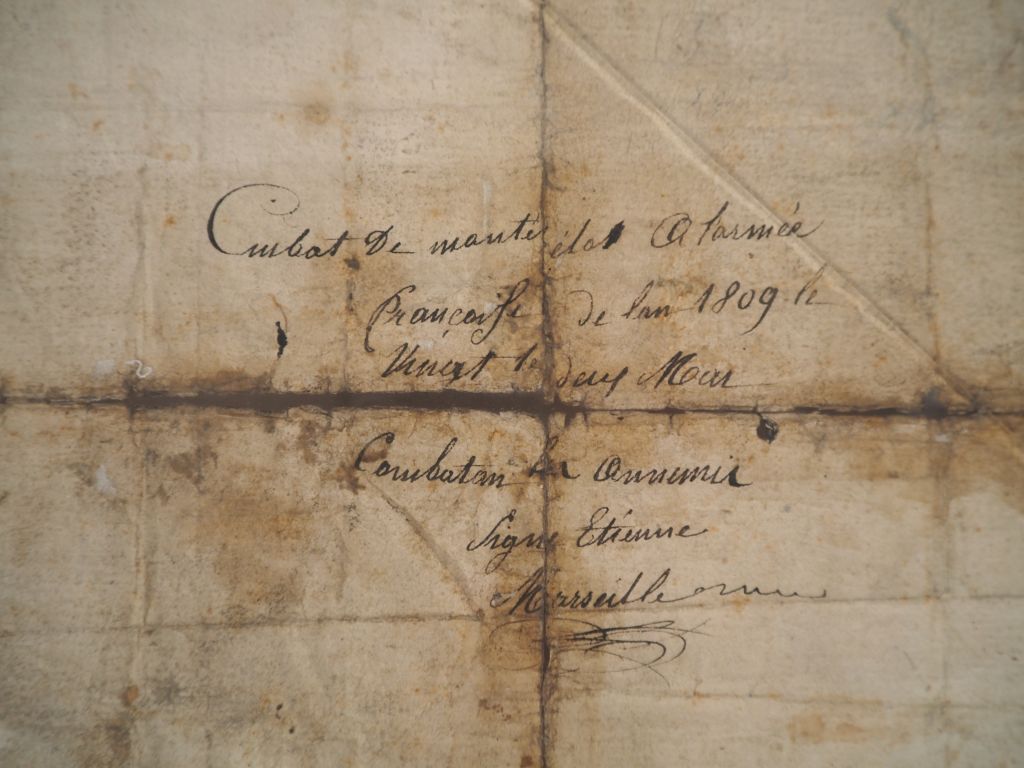 Combat De mante élas A larmée
françoise de lan 1809 le
Vingt le deux Mai
Combatan les annemis
Signe Etienne
Marseille